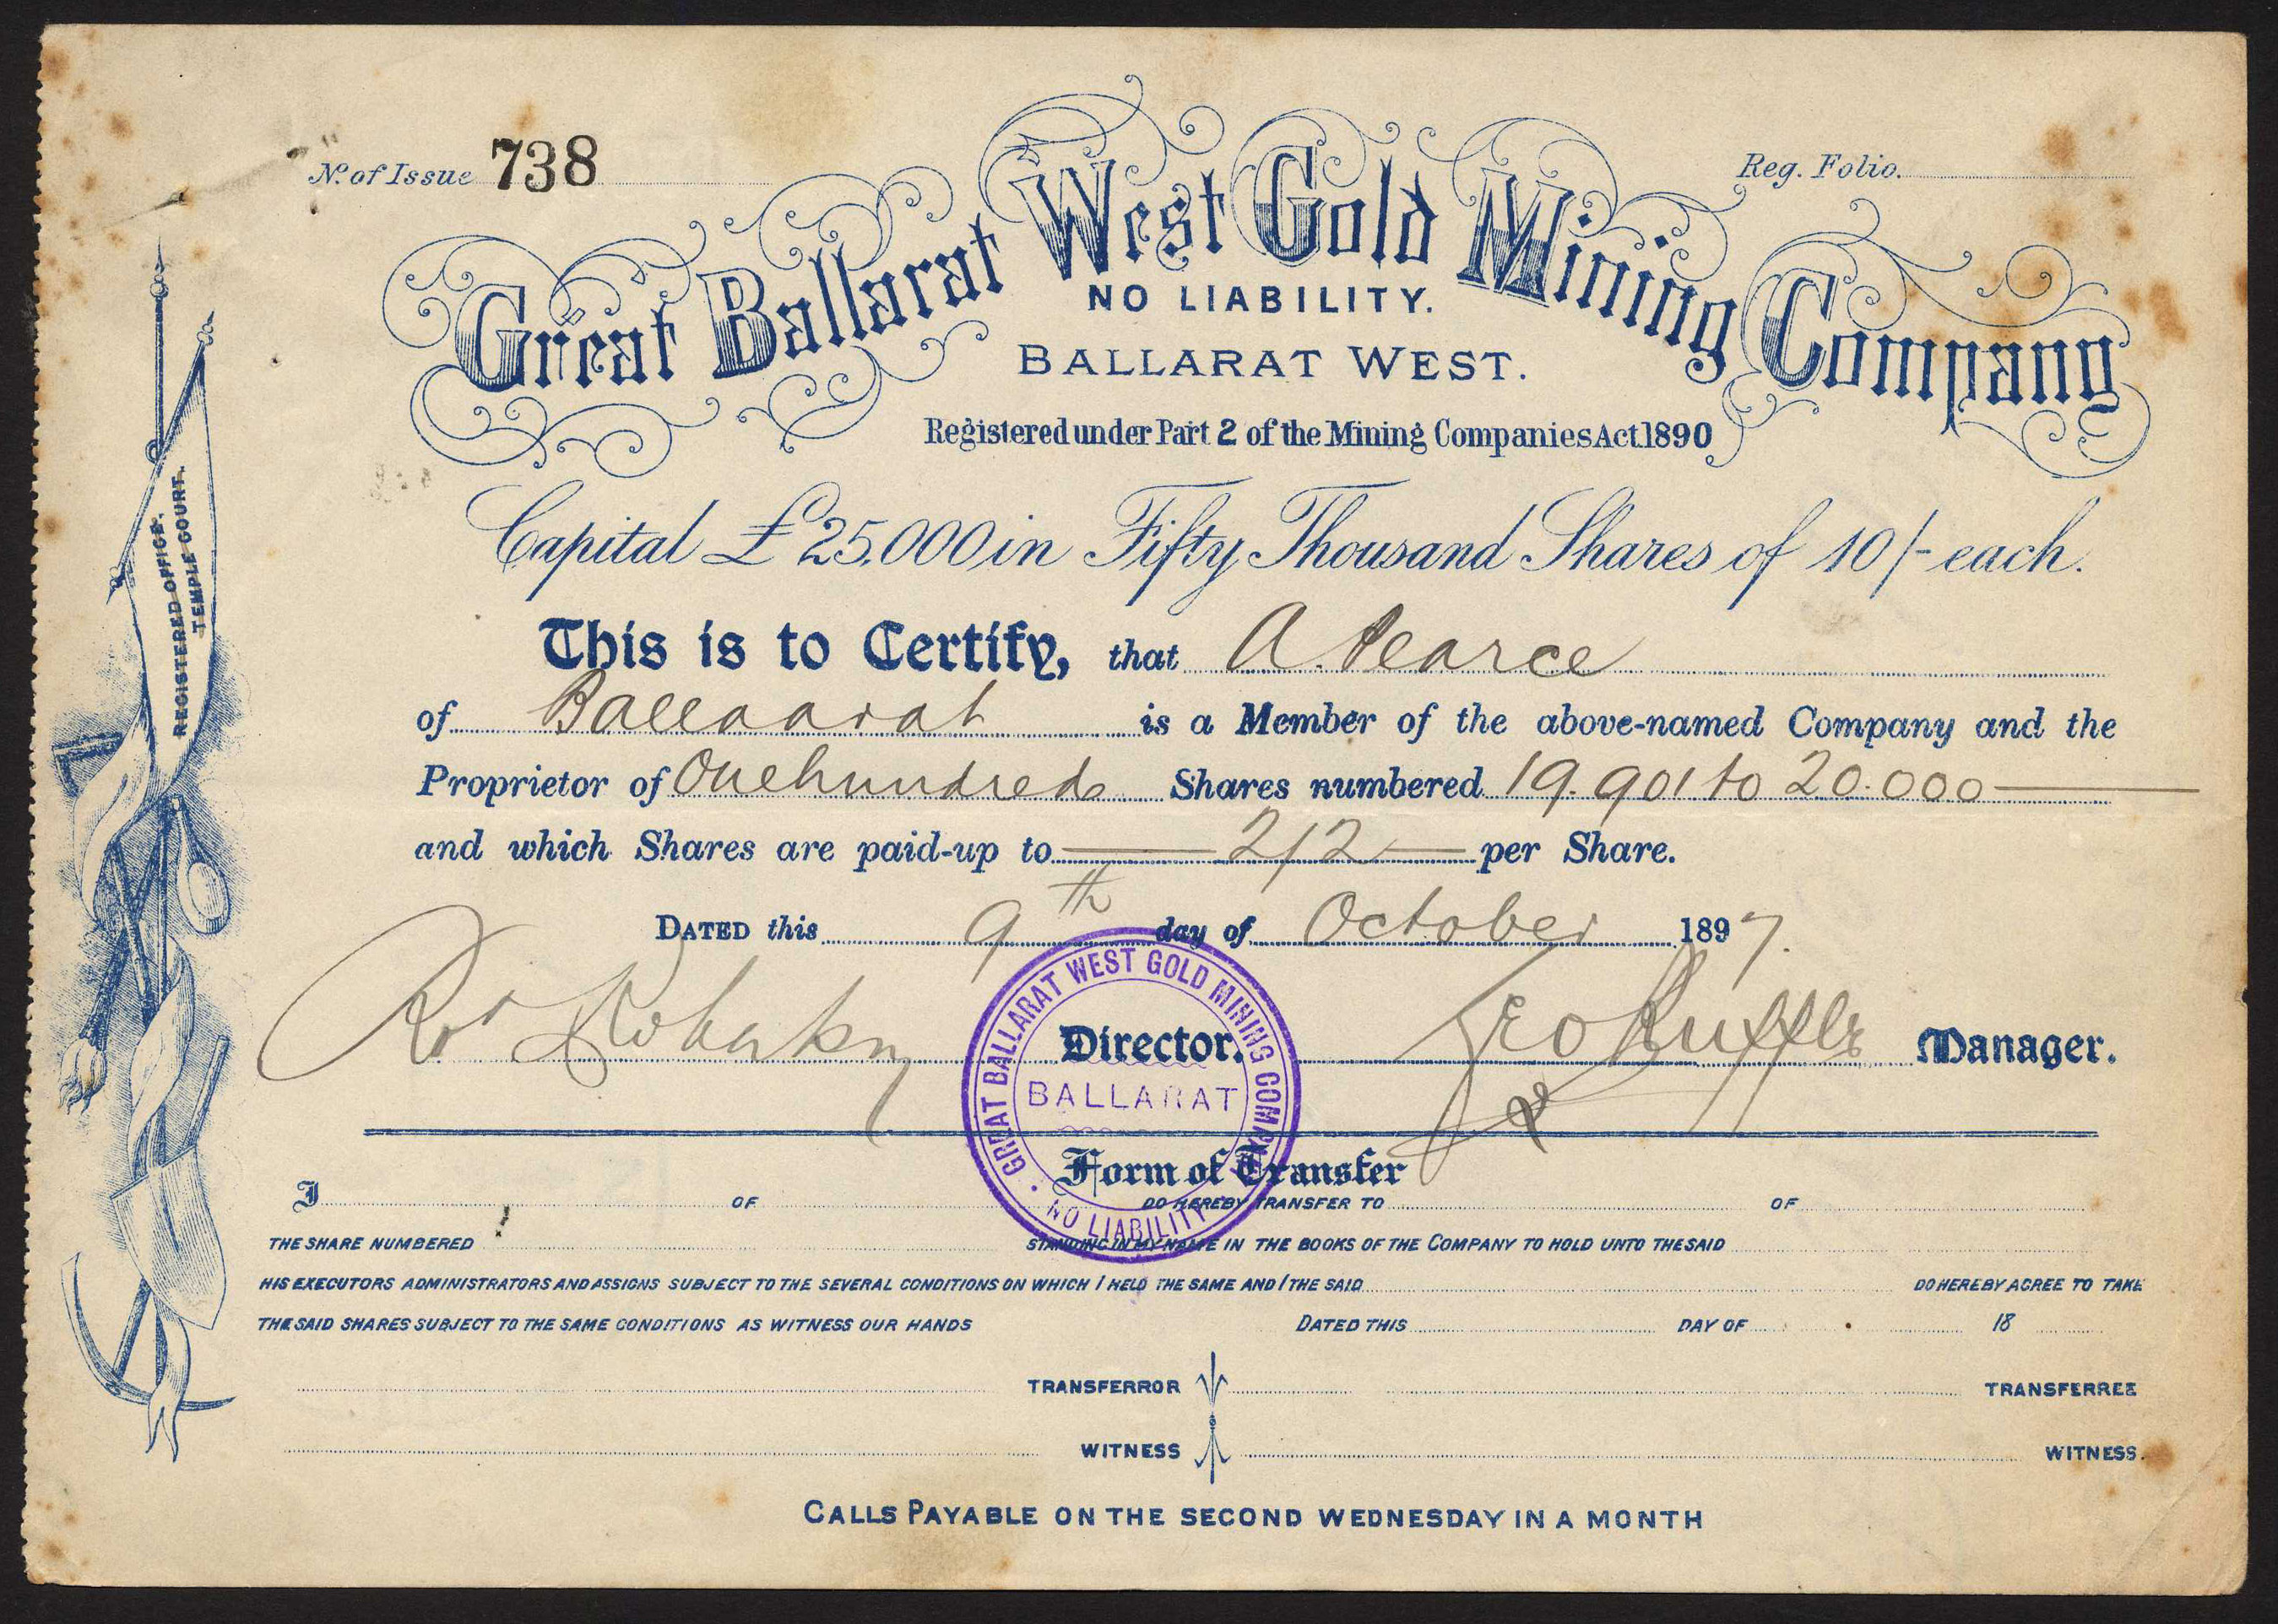 No. of Issue 738
Reg. Folio.
Great Ballarat West Gold Mining Company
NO LIABILITY.
BALLARAT WEST.
Registered under Part 2 of the Mining Companies Act 1890
REGISTERED OFFICE.
TEMPLE COURT.
Capital £25.000 in Fifty Thousand Shares of 10/- each.
This is to Certify, that A. Pearce
of Ballaarat is a Member of the above-named Company and the
Proprietor of One hundred Shares numbered 19.901 to 20.000
and which Shares are paid-up to 2/2 per Share.
DATED this 9th day of October 1897.
Director. Geo Ruffle Manager.
GREAT BALLARAT WEST GOLD MINING COMPANY
BALLARAT
NO LIABILITY
Form of Transfer
I OF DO HEREBY TRANSFER TO OF
THE SHARE NUMBERED STANDING IN MY NAME IN THE BOOKS OF THE COMPANY TO HOLD UNTO THE SAID
HIS EXECUTORS ADMINISTRATORS AND ASSIGNS SUBJECT TO THE SEVERAL CONDITIONS ON WHICH I HELD THE SAME AND I THE SAID DO HEREBY AGREE TO TAKE
THE SAID SHARES SUBJECT TO THE SAME CONDITIONS AS WITNESS OUR HANDS DATED THIS DAY OF 18
TRANSFERROR TRANSFERREE
WITNESS WITNESS.
CALLS PAYABLE ON THE SECOND WEDNESDAY IN A MONTH